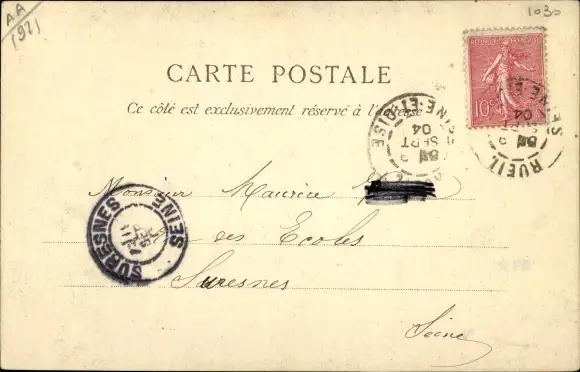 AA
1921
1030
REPUBLIQUE FRANÇAISE
10c
CARTE POSTALE
Ce côté est exclusivement réservé à l'adresse
RUEIL SEINE-ET-OISE
SEPT
04
RUEIL
SEPT
04
Monsieur Maurice
des Ecoles
SURESNES SEINE
Suresnes
Seine